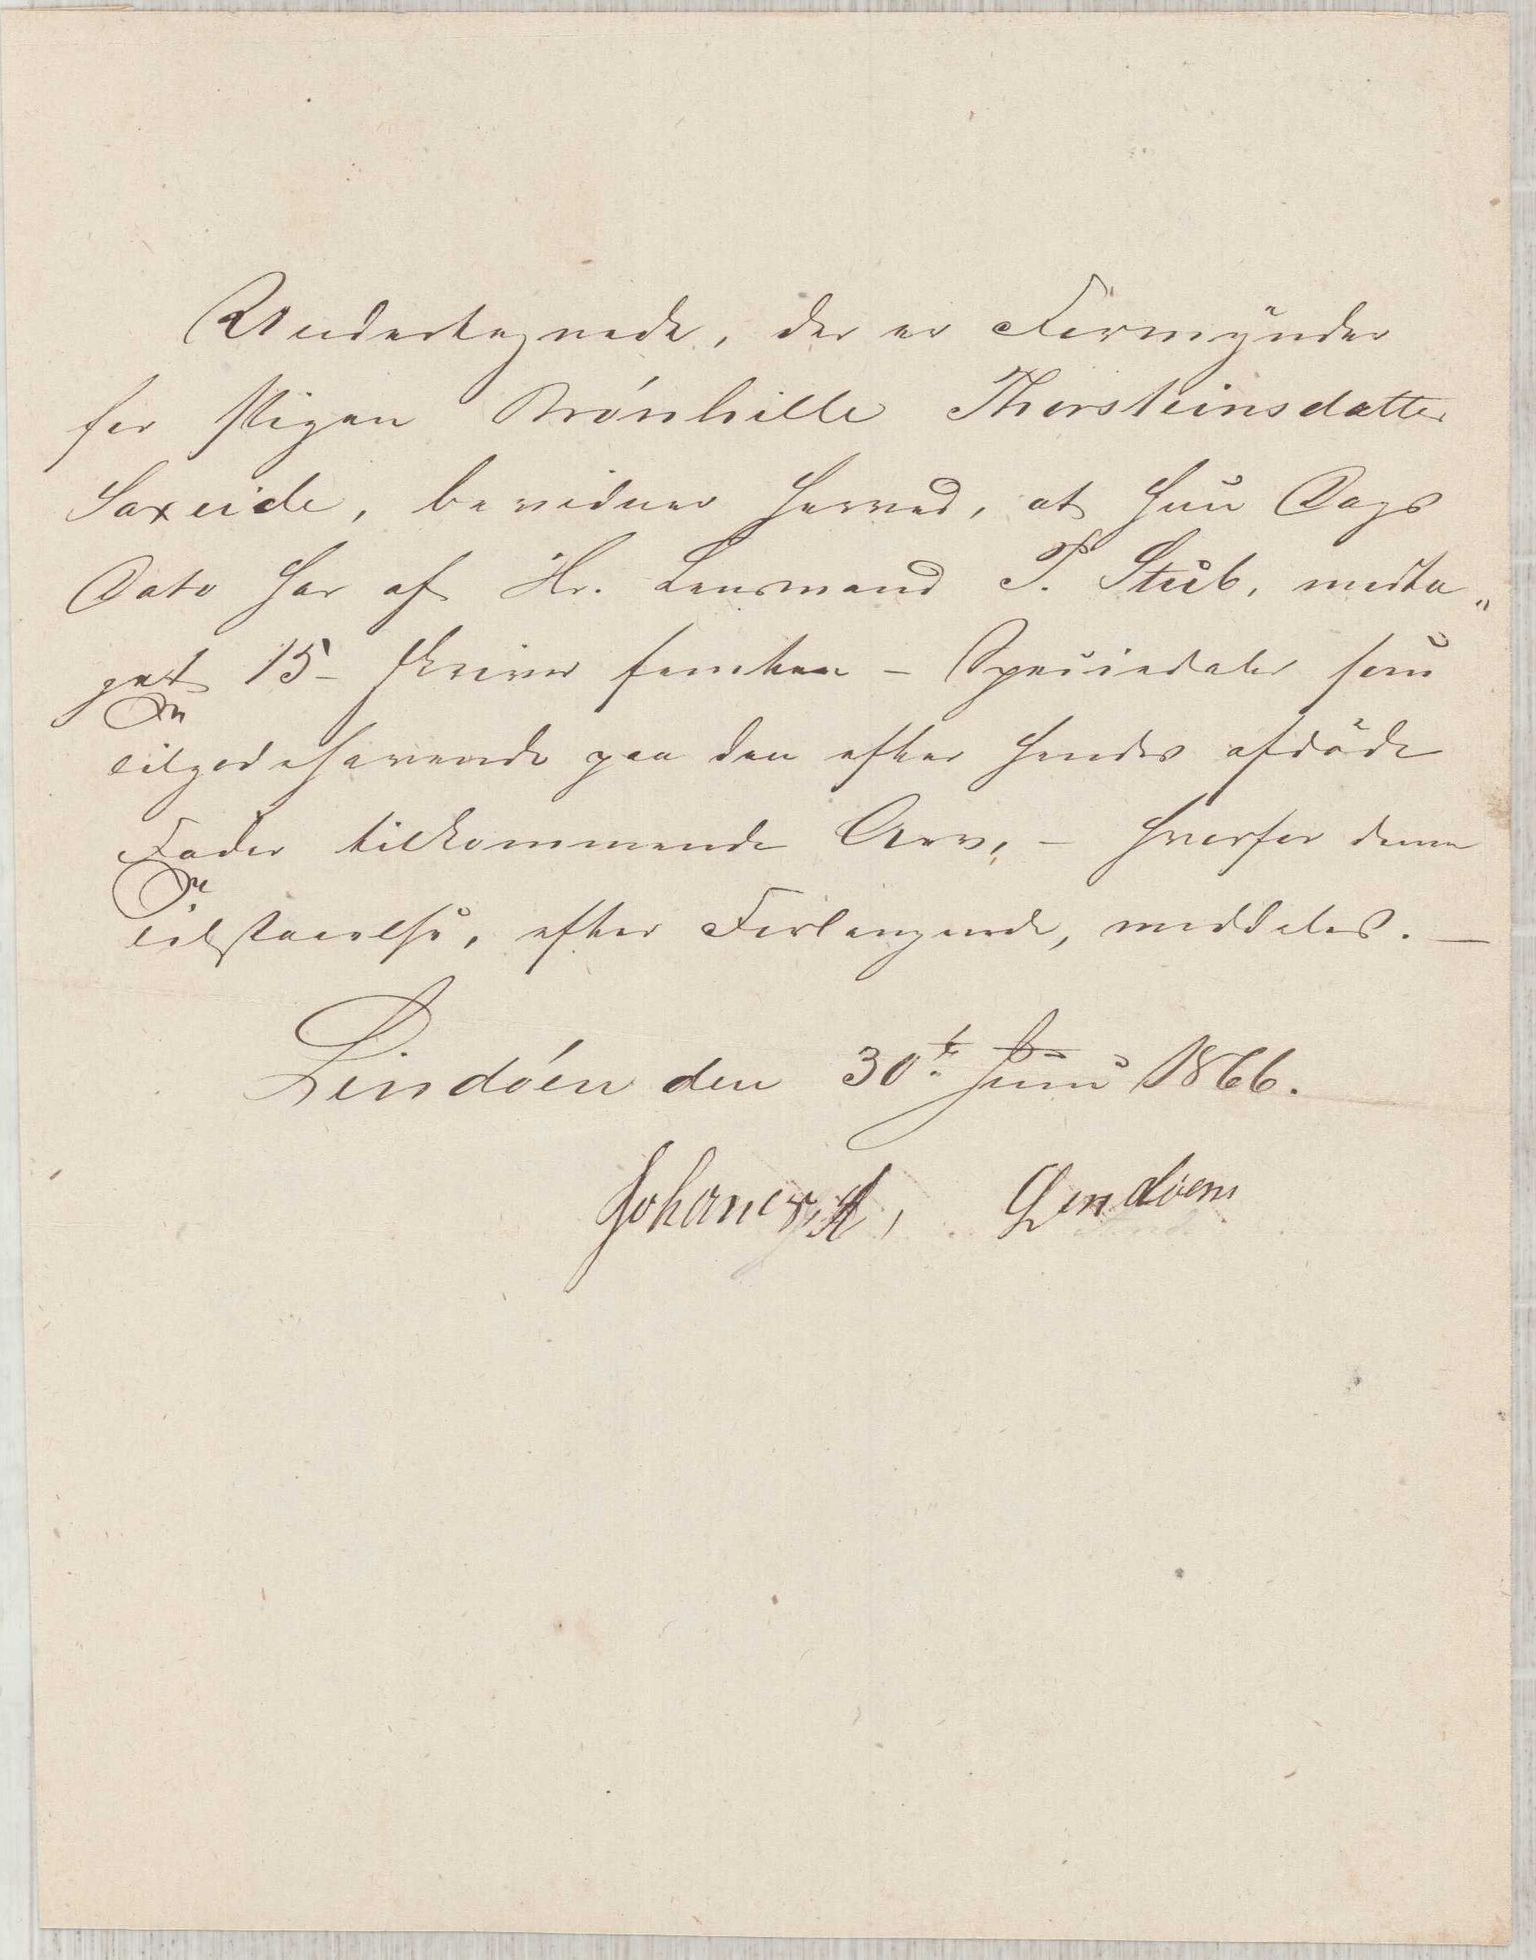 Undertegnede, der er Formÿnder
for Pigen Brónhille Thorsteinsdatter
Saxeide, bevidner herved, at hun Dags
Dato har af Hr. Lensmand T. Stub, modta„
get 15 – skriver femten – Speciedaler som
Tilgodehavende paa den efter hendes afdöde
Fader tilkommende Arv, – hvorfor denne
Tilstaaelse, efter Forlangende, meddeles. —
Lindóen den 30te Juni 1866.
Johanes A, Lindöen